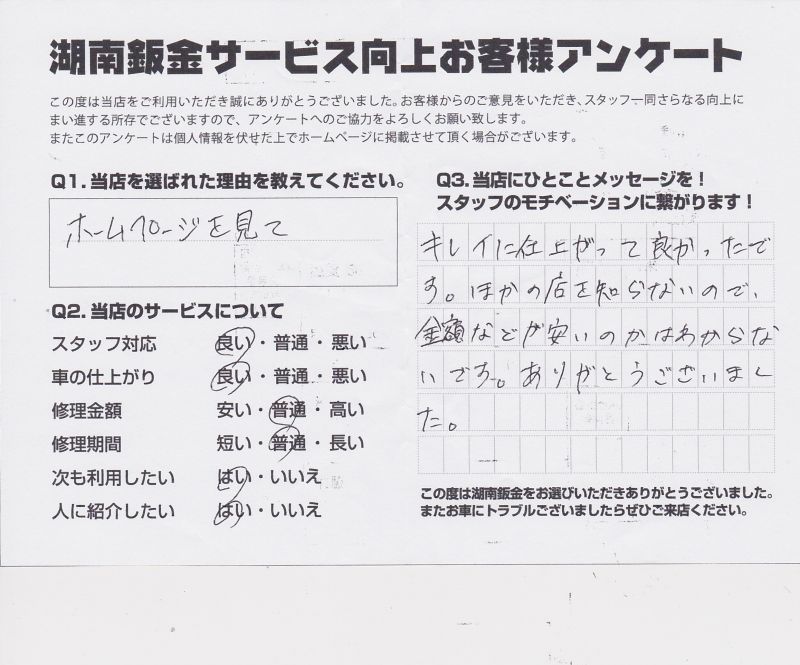 湖南鈑金サービス向上お客様アンケート
この度は当店をご利用いただき誠にありがとうございました。お客様からのご意見をいただき、スタッフ一同さらなる向上に
まい進する所存でございますので、アンケートへのご協力をよろしくお願い致します。
またこのアンケートは個人情報を伏せた上でホームページに掲載させて頂く場合がございます。
Q1. 当店を選ばれた理由を教えてください。
ホームページを見て
Q2. 当店のサービスについて
スタッフ対応 良い・普通・悪い
車の仕上がり 良い・普通・悪い
修理金額 安い・普通・高い
修理期間 短い・普通・長い
次も利用したい はい・いいえ
人に紹介したい はい・いいえ
Q3. 当店にひとことメッセージを!
スタッフのモチベーションに繋がります!
キレイに仕上がって良かったで
す。ほかの店を知らないので、
金額などが安いのかはわからな
いです。ありがとうございまし
た。
この度は湖南鈑金をお選びいただきありがとうございました。
またお車にトラブルございましたらぜひご来店ください。